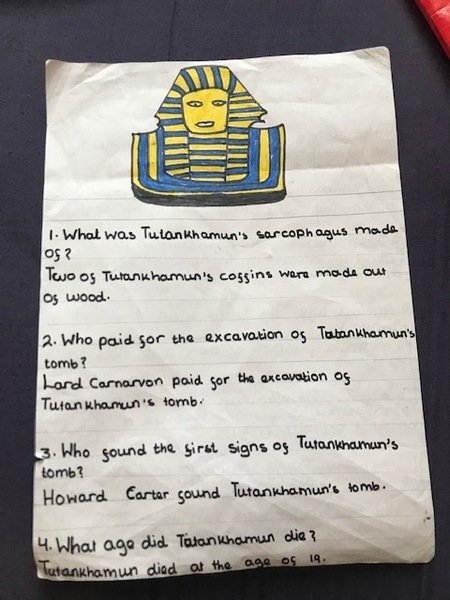 1. What was Tutankhamun's sarcophagus made
of?
Two of Tutankhamun's coffins were made out
of wood.
2. Who paid for the excavation of Tutankhamun's
tomb?
Lord Carnarvon paid for the excavation of
Tutankhamun's tomb.
3. Who found the first signs of Tutankhamun's
tomb?
Howard Carter found Tutankhamun's tomb.
4. What age did Tutankhamun die?
Tutankhamun died at the age of 19.